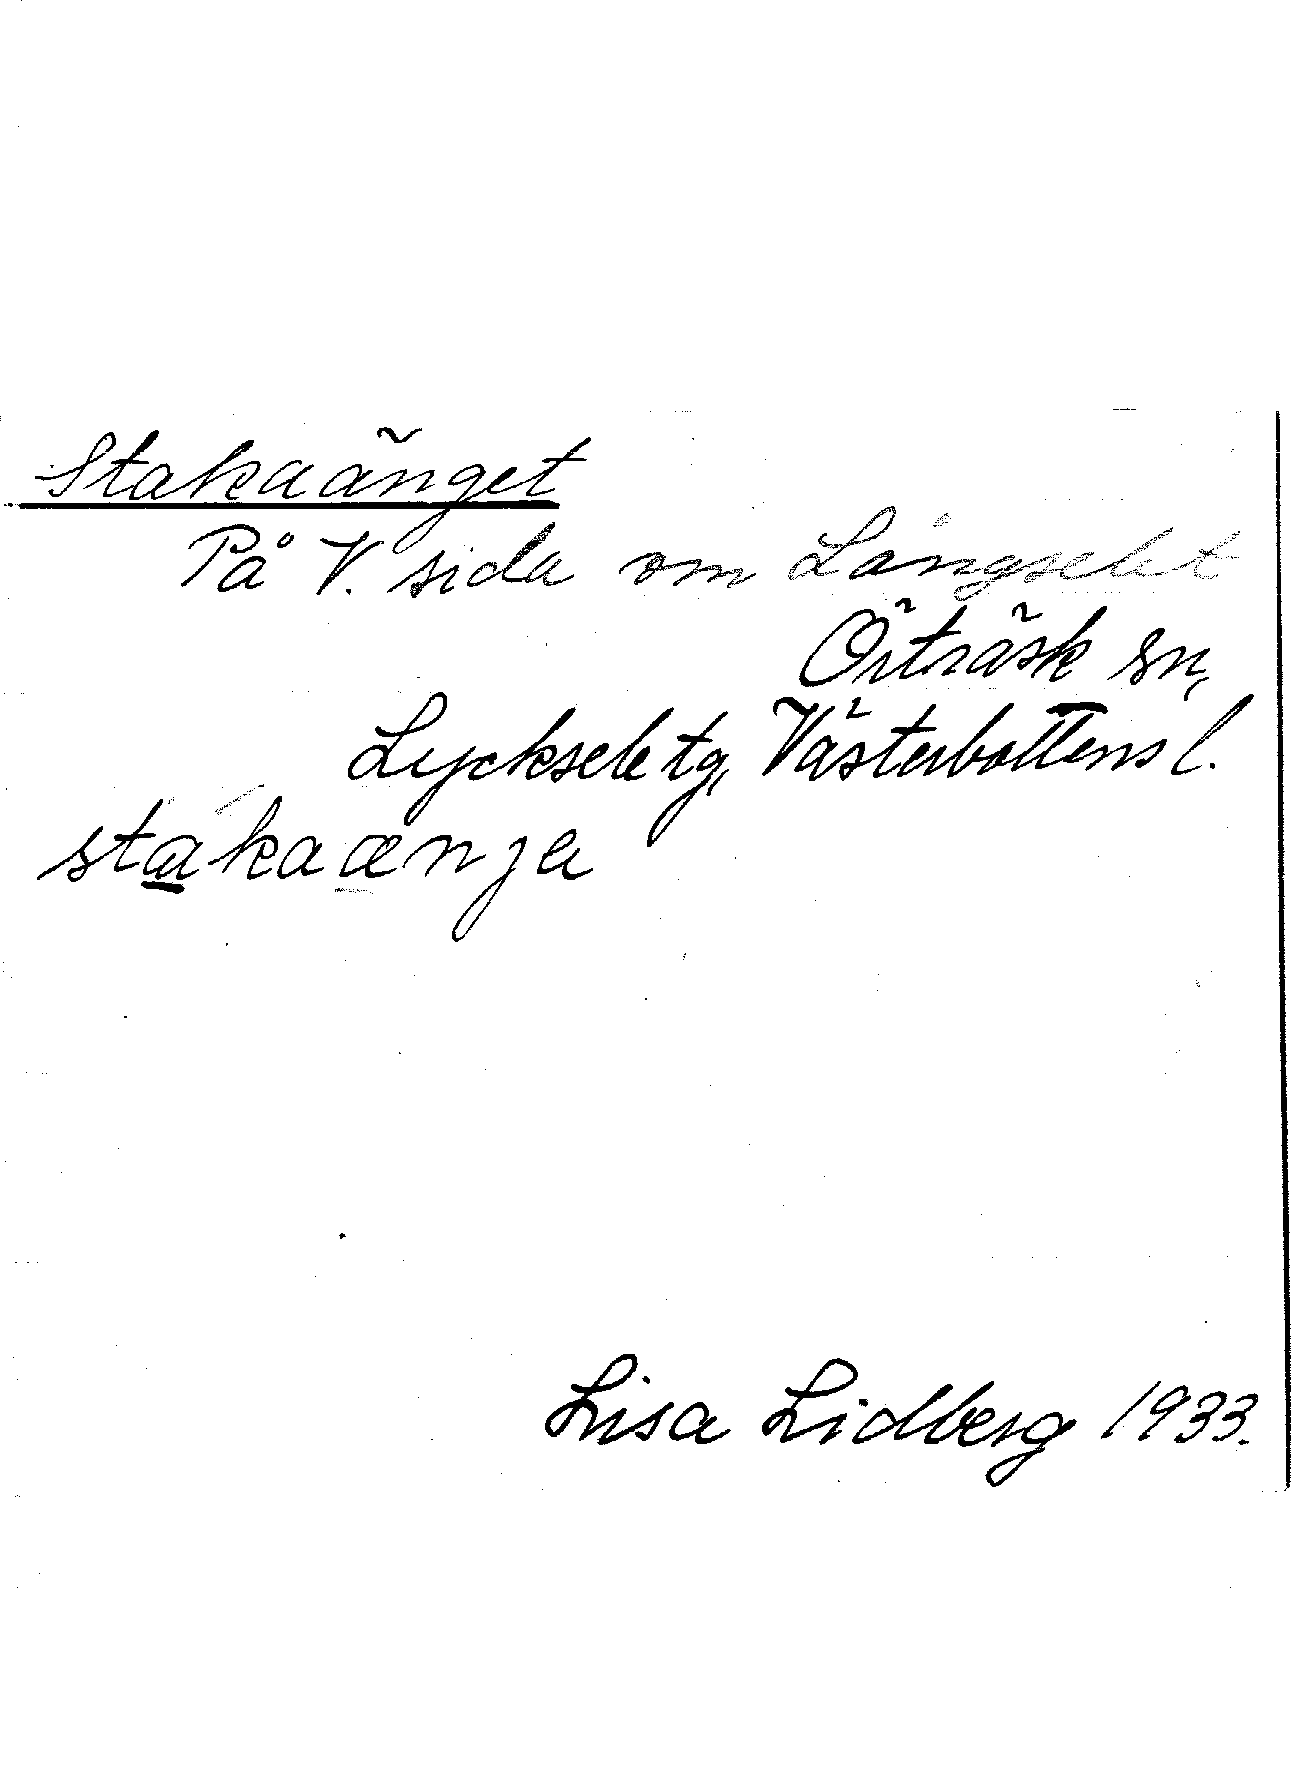 Stakaänget
På V. sida om Långselet
Örträsk sn,
Lycksele tg, Västerbottens l.
stakaænja
Lisa Lidberg 1933.